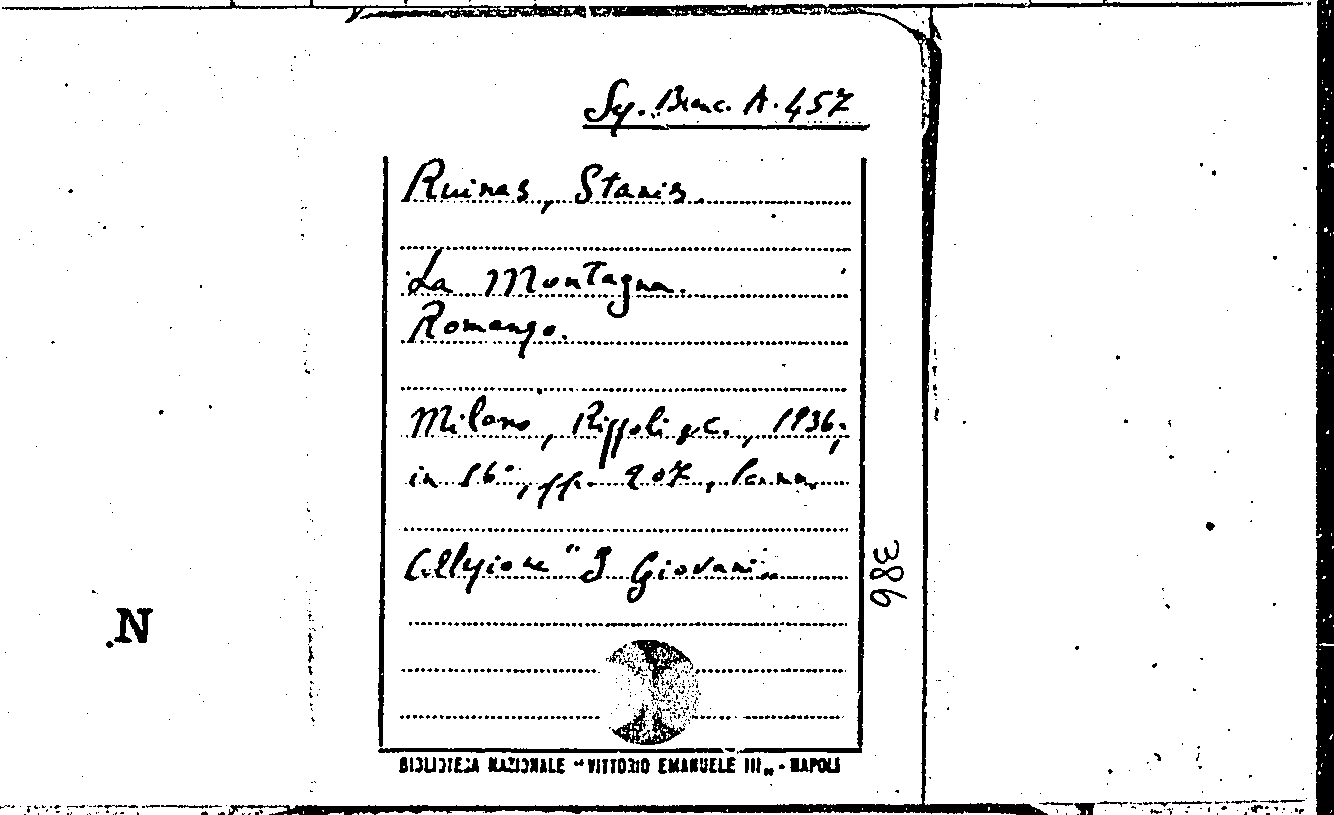 Sy. Branc. A. 457
Ruinas, Stanis.
La Montagna.
Romanzo.
Milano, Riffoli & C., 1936;
in 16°, pp. 207,
Collezione "I Giovani"
386
N
BIBLIOTECA NAZIONALE "VITTORIO EMANUELE III" - NAPOLI